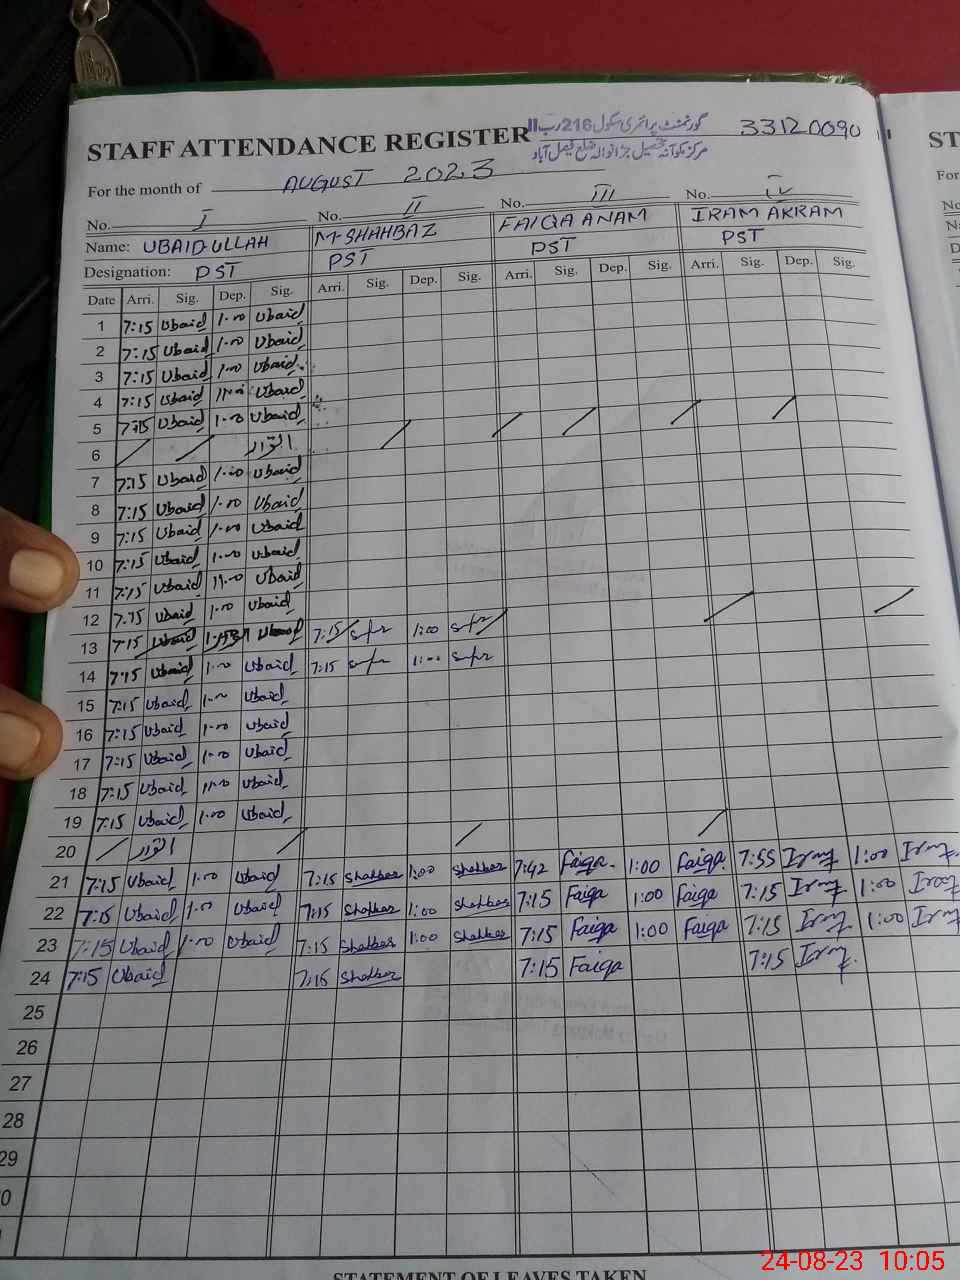 STAFF ATTENDANCE REGISTER گورنمنٹ پرائمری سکول 216 رب II 33120090
مرکز مکوآنہ تحصیل جڑانوالہ ضلع فیصل آباد
For the month of AUGUST 2023
No. I No. II No. III No. IV
Name: UBAID-ULLAH M-SHAHBAZ FAIQA ANAM IRAM AKRAM
Designation: PST PST PST PST
Date Arri. Sig. Dep. Sig. Arri. Sig. Dep. Sig. Arri. Sig. Dep. Sig. Arri. Sig. Dep. Sig.
1 7:15 Ubaid 1:00 Ubaid
2 7:15 Ubaid 1:00 Ubaid
3 7:15 Ubaid 1:00 Ubaid
4 7:15 Ubaid 11:00 Ubaid
5 7:15 Ubaid 1:00 Ubaid
6 اتوار
7 7:15 Ubaid 1:00 Ubaid
8 7:15 Ubaid 1:00 Ubaid
9 7:15 Ubaid 1:00 Ubaid
10 7:15 Ubaid 1:00 Ubaid
11 7:15 Ubaid 11:00 Ubaid
12 7:15 Ubaid 1:00 Ubaid
13 7:15 Ubaid Ubaid 7:15 1:00
14 7:15 Ubaid 1:00 Ubaid 7:15 1:00
15 7:15 Ubaid 1:00 Ubaid
16 7:15 Ubaid 1:00 Ubaid
17 7:15 Ubaid 1:00 Ubaid
18 7:15 Ubaid 11:00 Ubaid
19 7:15 Ubaid 1:00 Ubaid
20 اتوار
21 7:15 Ubaid 1:00 Ubaid 7:15 Shahbaz 1:00 Shahbaz 7:42 Faiqa 1:00 Faiqa 7:55 Iram 1:00 Iram
22 7:15 Ubaid 1:00 Ubaid 7:15 Shahbaz 1:00 Shahbaz 7:15 Faiqa 1:00 Faiqa 7:15 Iram 1:00 Iram
23 7:15 Ubaid 1:00 Ubaid 7:15 Shahbaz 1:00 Shahbaz 7:15 Faiqa 1:00 Faiqa 7:15 Iram 1:00 Iram
24 7:15 Ubaid 7:15 Shahbaz 7:15 Faiqa 7:15 Iram
25
26
27
28
29
0
STATEMENT OF LEAVES TAKEN
ST
For
No
Na
D
24-08-23 10:05